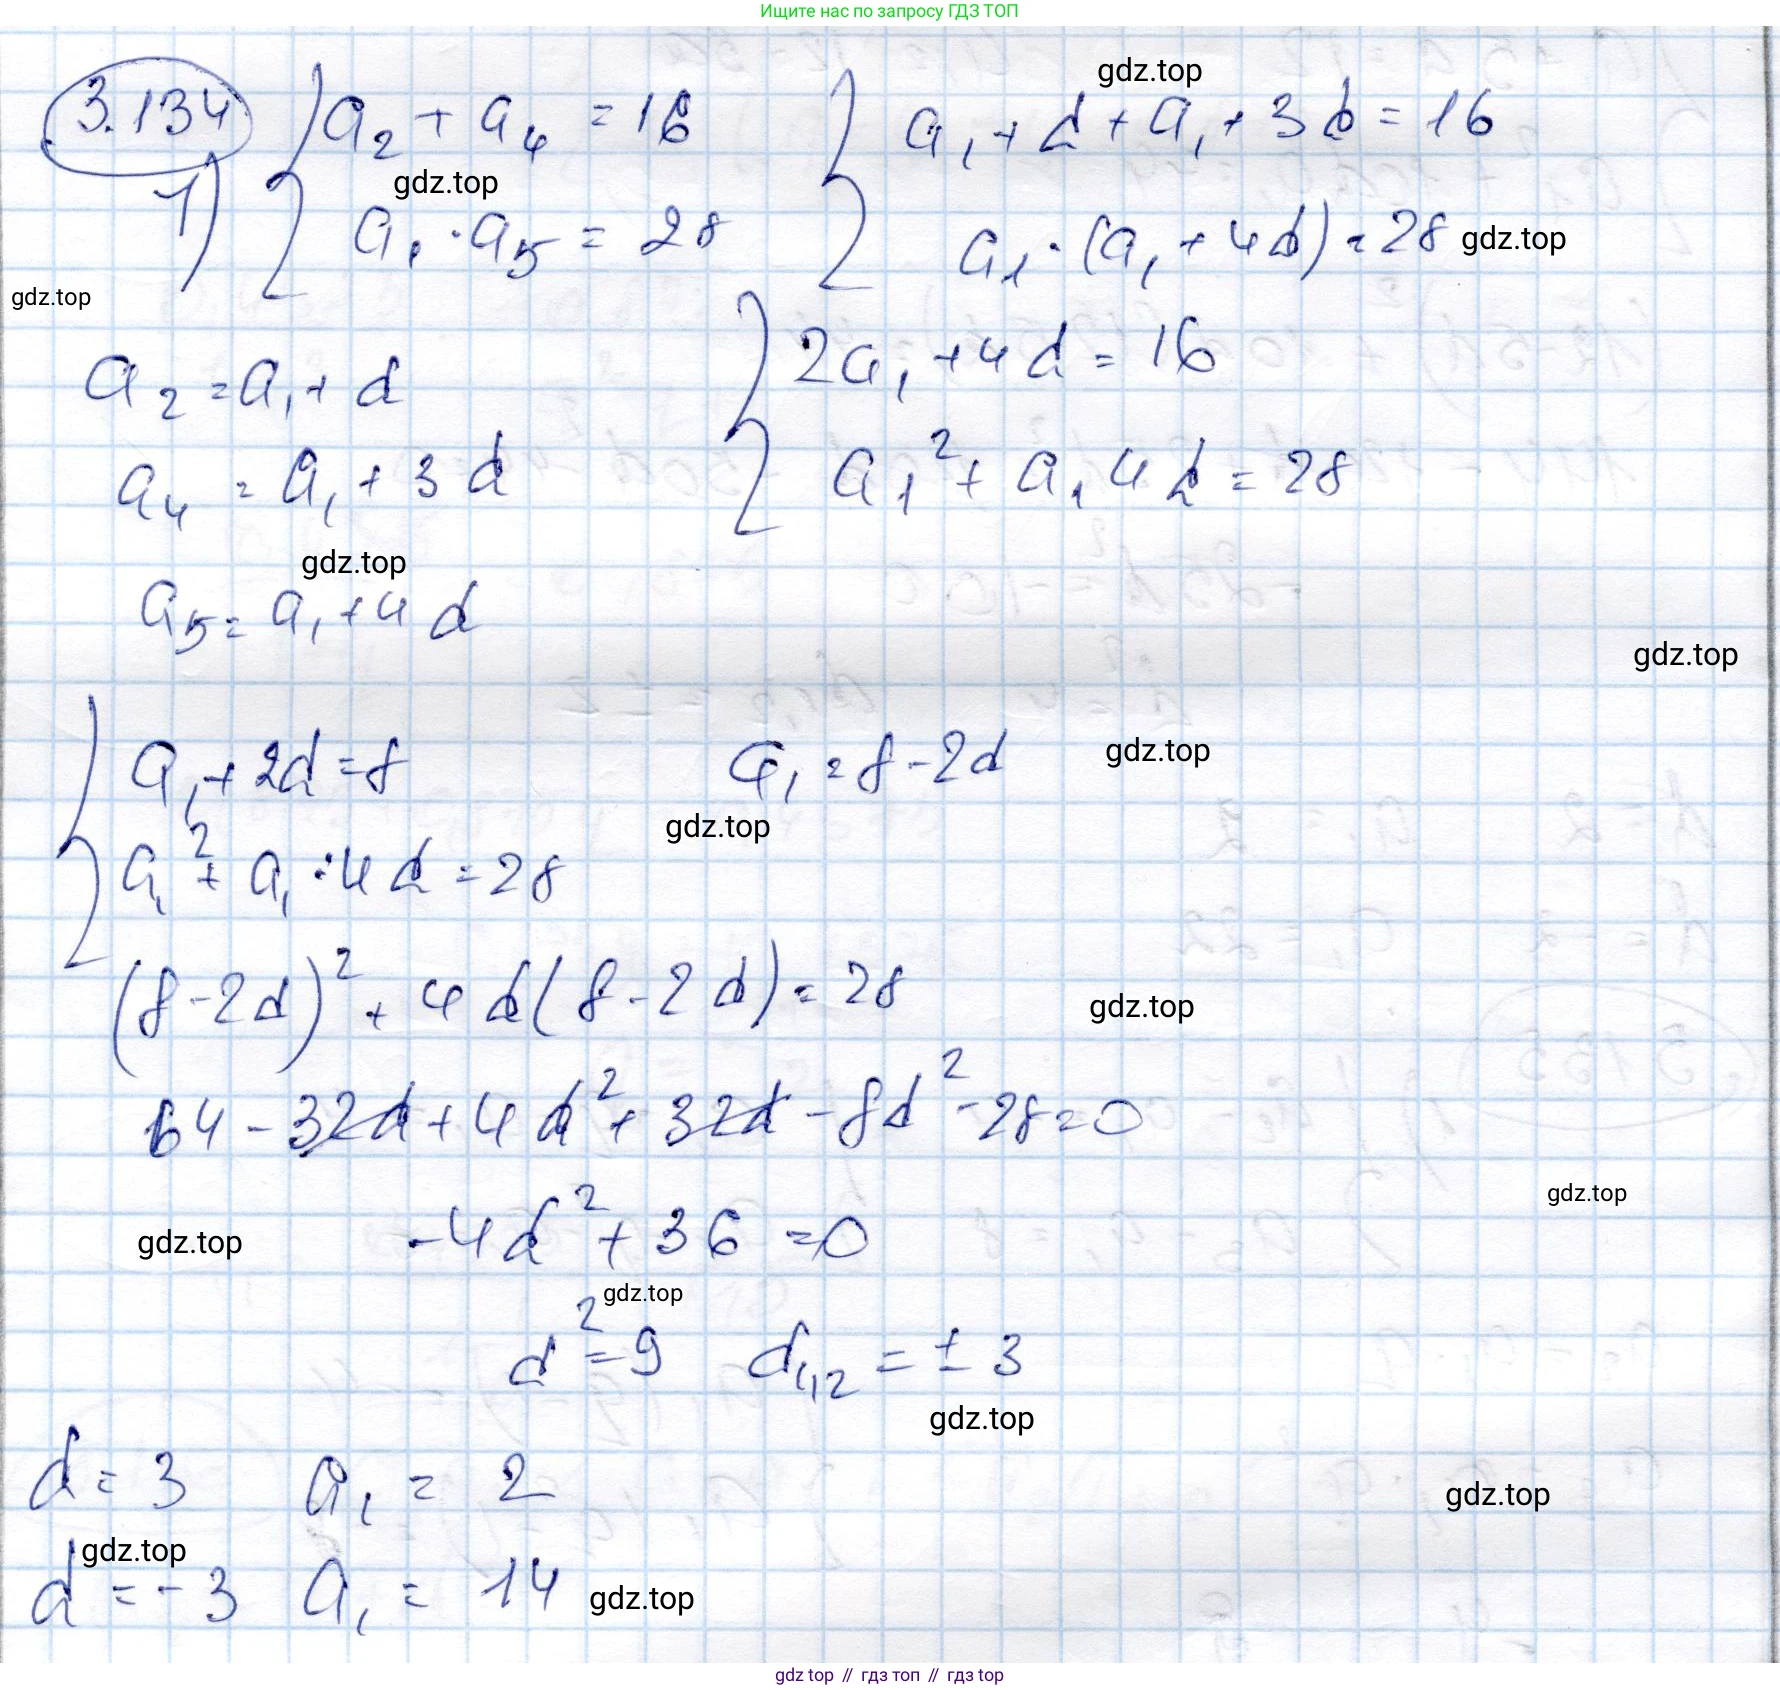 Ищите нас по запросу ГДЗ ТОП
3.134
1) { a₂ + a₄ = 16
a₁ · a₅ = 28
{ a₁ + d + a₁ + 3d = 16
a₁ · (a₁ + 4d) = 28
gdz.top
gdz.top
gdz.top
gdz.top
a₂ = a₁ + d
a₄ = a₁ + 3d
a₅ = a₁ + 4d
{ 2a₁ + 4d = 16
a₁² + a₁ 4d = 28
gdz.top
gdz.top
{ a₁ + 2d = 8
a₁² + a₁ · 4d = 28
a₁ = 8 - 2d
gdz.top
gdz.top
(8 - 2d)² + 4d(8 - 2d) = 28
gdz.top
64 - 32d + 4d² + 32d - 8d² - 28 = 0
gdz.top
gdz.top
-4d² + 36 = 0
gdz.top
d² = 9 d₁,₂ = ± 3
gdz.top
d = 3 a₁ = 2
gdz.top
gdz.top
d = -3 a₁ = 14
gdz.top
gdz top // гдз топ // гдз top